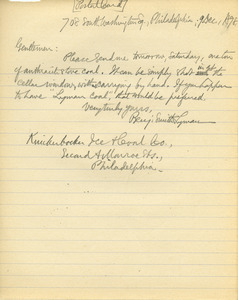 (Postal Card)
708 South Washington Sq., Philadelphia, 9 Dec.,
Gentlemen:
Please send me tomorrow, Saturday, a ton
of anthracite stove coal. It can be simply shot in at the
cellar window, without carrying by hand. If you happen
to have Lyman coal, that would be preferred.
Very truly yours,
Benj. Smith Lyman
Knickerbocker Ice & Coal Co.,
Second & Monroe Sts.,
Philadelphia.